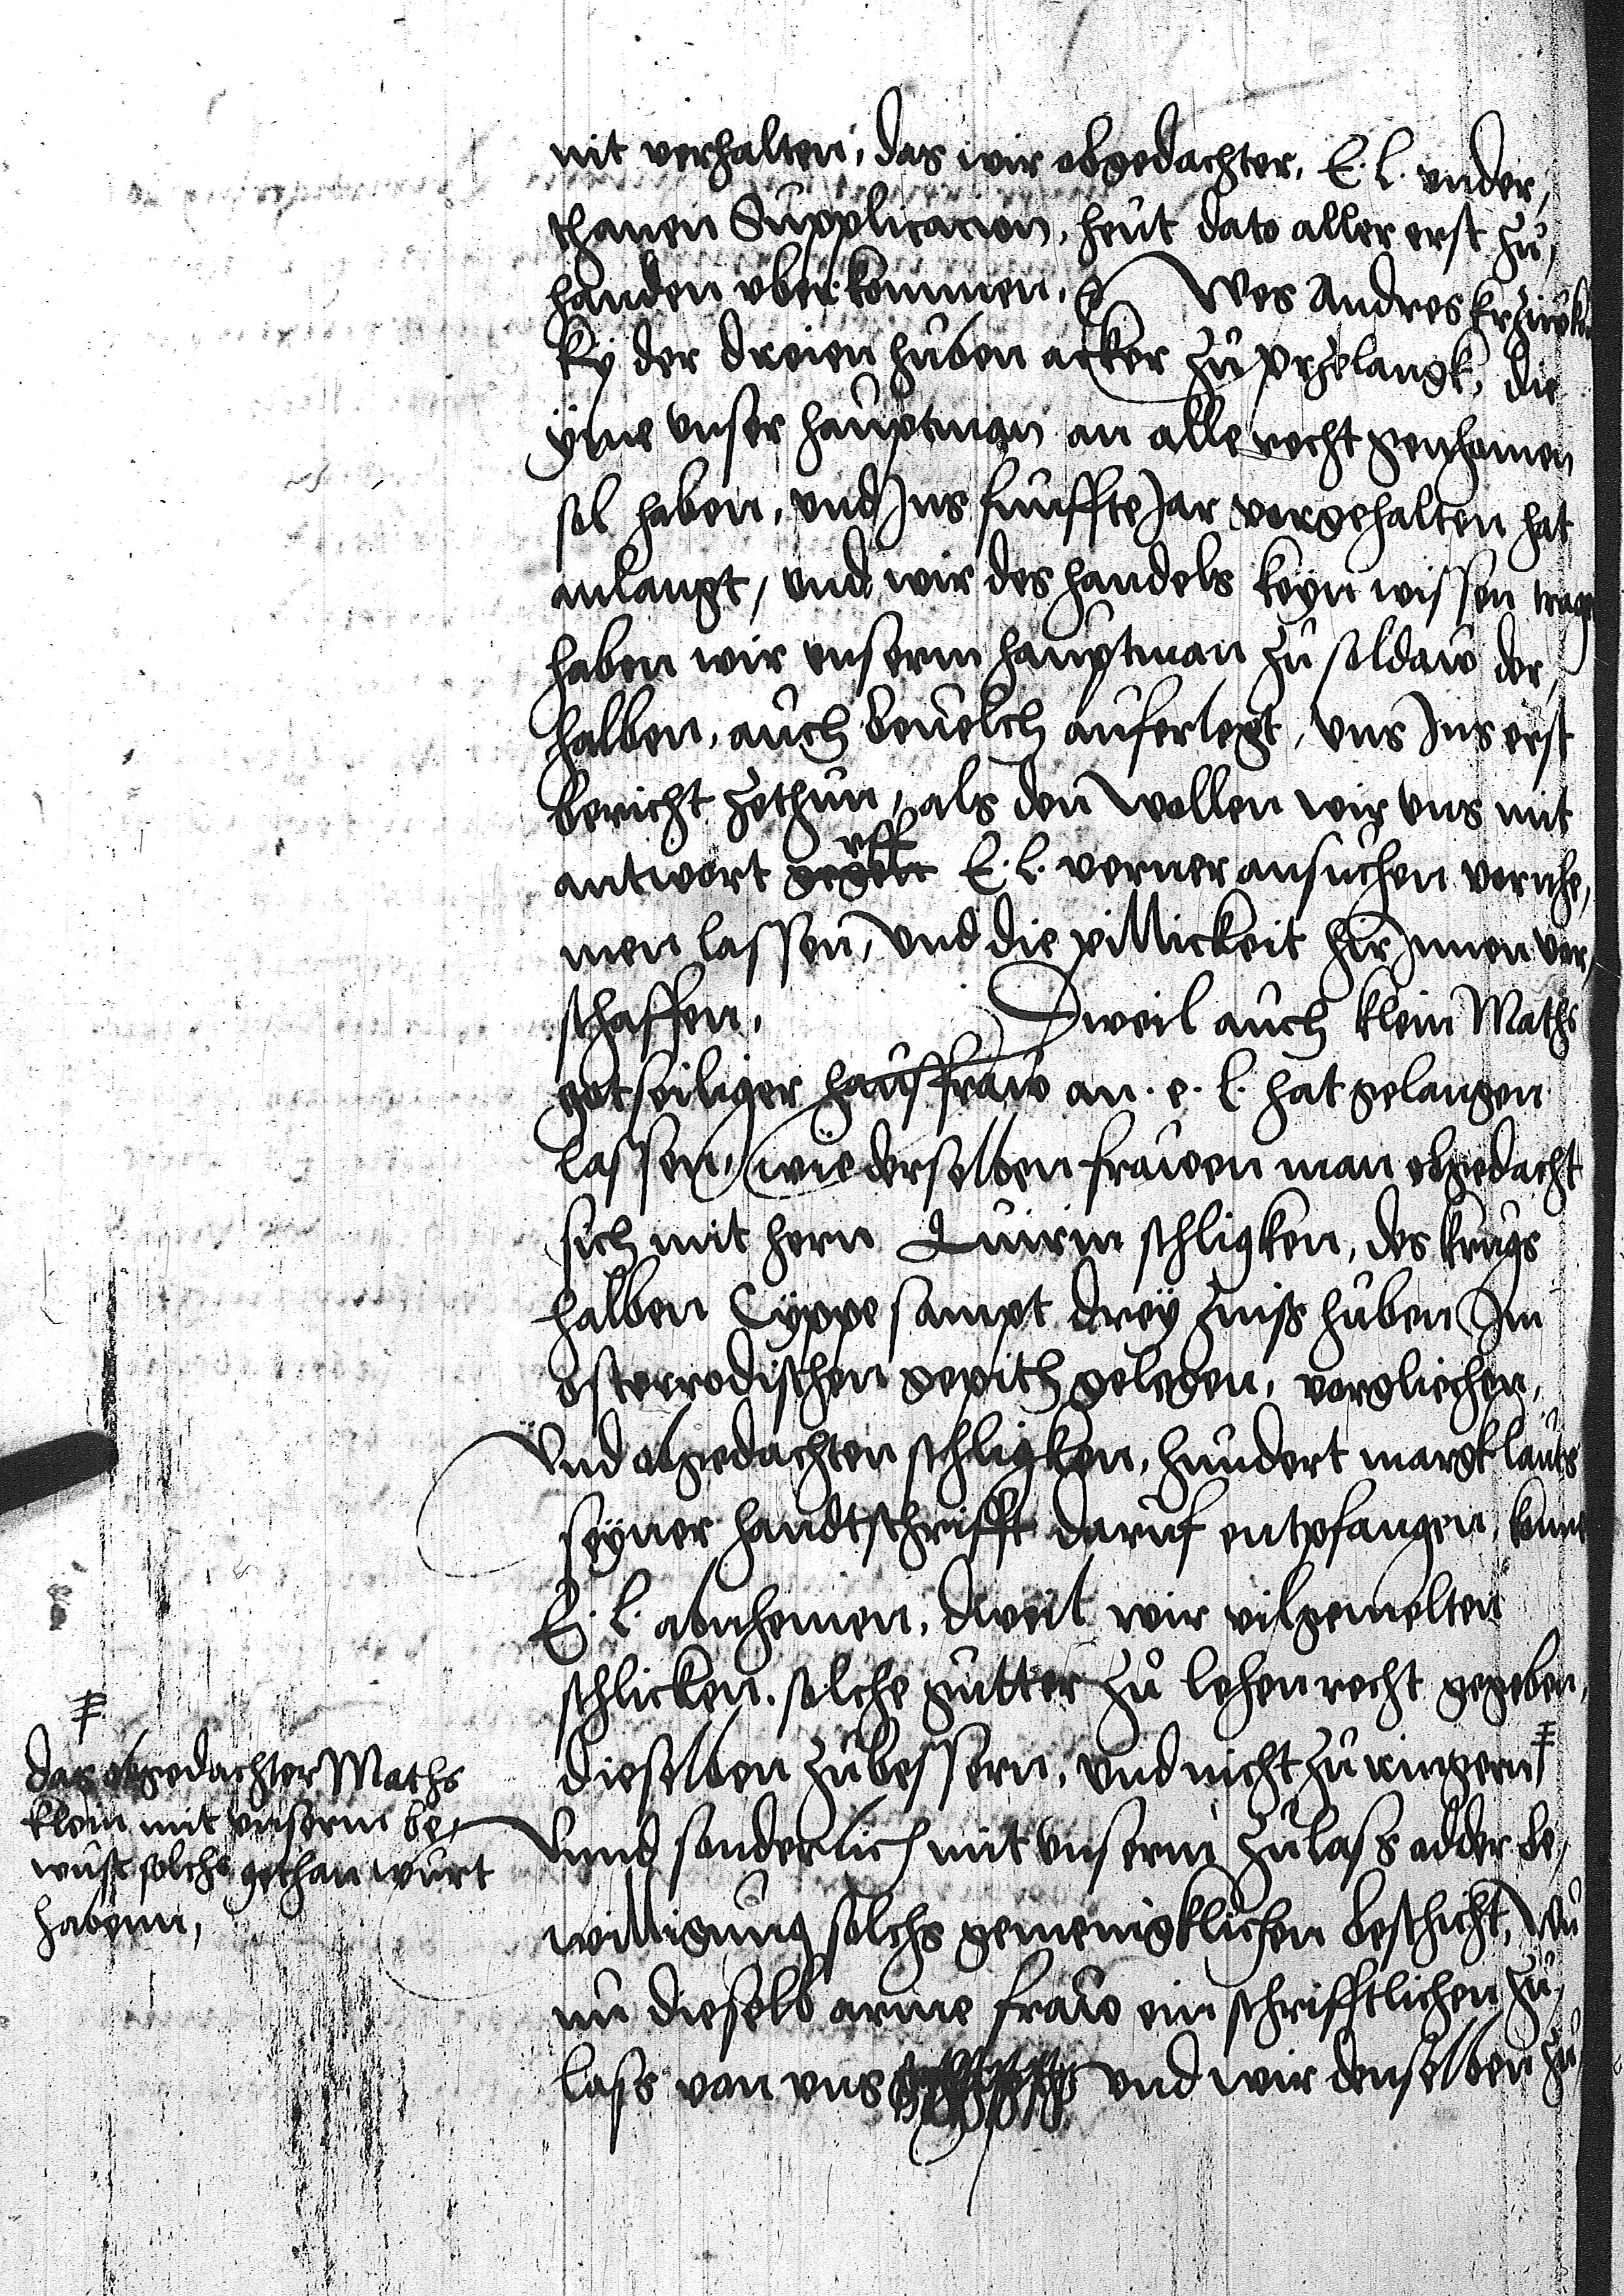 nit verhalten, das wir obgedachter, E. L. vnder,
thanen Supplicacion, heut dato aller erst zu,
handen vberkommen. Wes Andres
ky der dreien huben acker zu przelangk, die
yme vnser hauptman an alle recht genhomen
sol haben, vnd Ins funffte Jar vorgehalten hat
anlangt, vnd wir des handels keyn wissen trage
haben wir vnserm hauptman zu soldaw der,
halben, auch beuelch auferlegt, vns Ins erst
bericht zethun, als den wollen wir vns mit
antwort gegen vff E. L. verner ansuchen vernhe,
men lassen, vnd die pillickeit hir Innen ver,
schaffen. Dweil auch klein Maths
gotseiliger hausfraw an. e. l. hat gelangen
lassen, wie derselben frawen man obgedacht
sich mit hern Quirin schligken, des krugs
halben Cyppe sampt drey zinsß huben Im
osterrodischen gepith gelegen, vorgliechen,
Vnd obgedachten schligken, hundert margk lauts
seyner handtschrifft daruf entpfangen, konne
E. L. abnhemen, dweil wir vilgemelten
schlicken. solche gutter zu lehenrecht gegeben,
dieselben zubessern, vnd nicht zu ringern ╪
Vnnd sonderlich mit vnserm zulass adder be,
willigung solchs gemenigklichen beschicht, Wu
nu dieselb arme fraw ein schrifftlichen zu,
lass von vns vnd wir denselben zu
╪
das obgedachter Maths
klein mit vnserm be,
wust solchs gethan wurt
habenn,